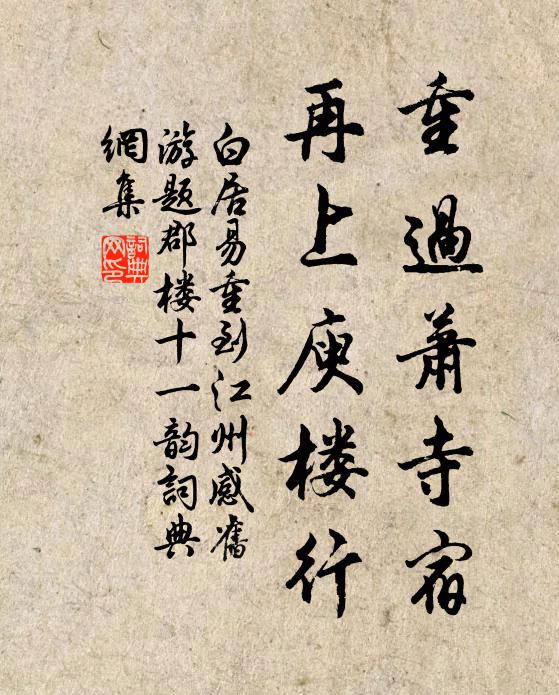 重過蕭寺宿
再上庾楼行
白居易重到江州感舊
游題郡楼十一韵詞典
網集
詞典
网印